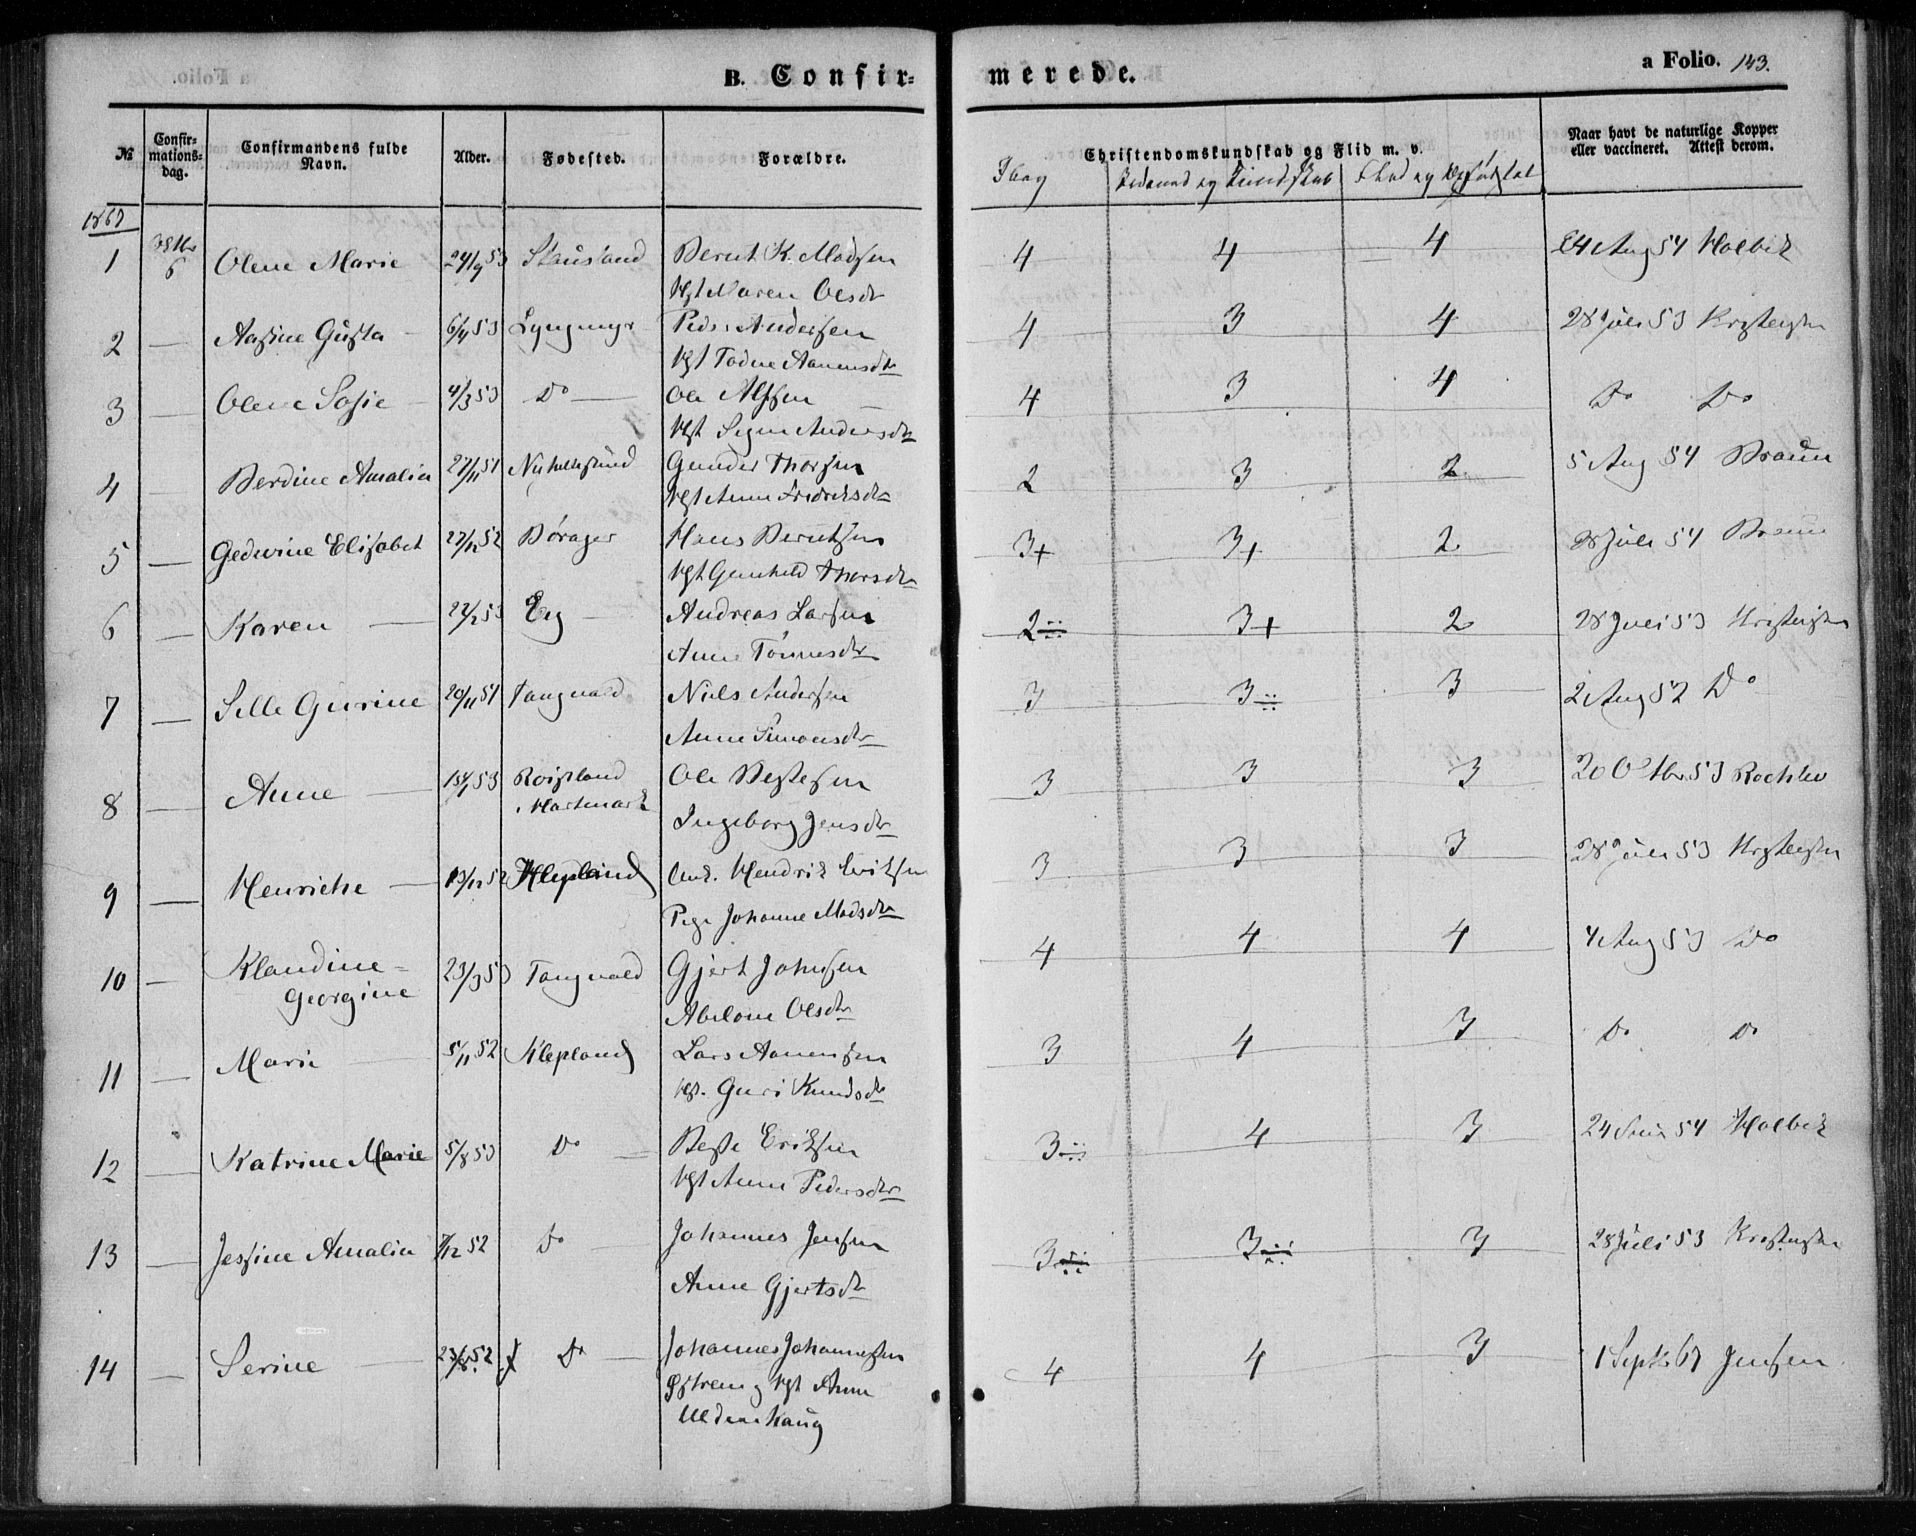 B. Confir-
merede.
a Folio. 143.
№ Confir-mations-dag. Confirmandens fulde Navn. Alder. Fødested. Forældre. Christendomskundskab og Flid m. v. Naar havt de naturlige Kopper eller vaccineret. Attest derom.
Flid og
1867
1 6 Olene Marie 24/9 53 Stausland Bernt K. Madsen 4 4 4 24 Aug 54 Holbek
Hgt Maren Olsdr
2 — Aasine Gusta 6/4 53 Lyngmyr Peder Andersen 4 3 4 28 Juli 53
Hgt Todne Aanensdr
3 — Olene Sofie 4/3 53 Do — Ole 4 3 4 Do Do
Hgt Andersdr
4 — Berdine Amalia 27/11 51 Gunder Thorsen 2 3 2 5 Aug 54 Braun
Hgt Anne Fredriksdr
5 — Gedwine Elisabet 27/12 52 Børager Hans Berntsen 3+ 3+ 2 28 Juli 54 Braun
Hgt Gunhild Thorsdr
6 — Karen — 22/2 53 Eeg Andreas Larsen 2 3+ 2 28 Juli 53
Anne Tønnesdr
7 — Sille Gurine 20/11 51 Tangvald Niels Andersen 3 3 3 2 Aug 52 Do
Anne Simonsdr
8 — Anne — 15/1 53 Roisland Ole 3 3 3 20 Otbr 53
i Hartmark
Ingeborg Jensdr
9 — Henriche — 13/12 52 Klepland Hendrik Eriksen 3 3 3 28 Juli 53
Pige Johanne Madsdr
10 — Klaudine- 23/3 53 Tangvald Gjert Johnsen 4 4 4 4 Aug 53 Do
Georgine
Abelone Olsdr
11 — Marie 5/11 52 Klepland Lars Aanensen 3 4 3 Do Do
Guri Knudsdr
12 Katrine Marie 5/8 53 Do Eriksen 3 4 3 24 54 Holbek
Hgt Anne Pedersdr
13 — Jessine Amalia 7/12 52 Do — Johannes Jensen 3 3 3 28 Juli 53
Anne Gjertsdr
14 — Serine — 52 Do — Johannes Johannesen 4 4 3 1 Septbr 67 Jensen
Hgt Anne